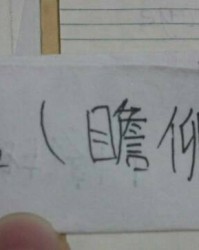 （瞻仰